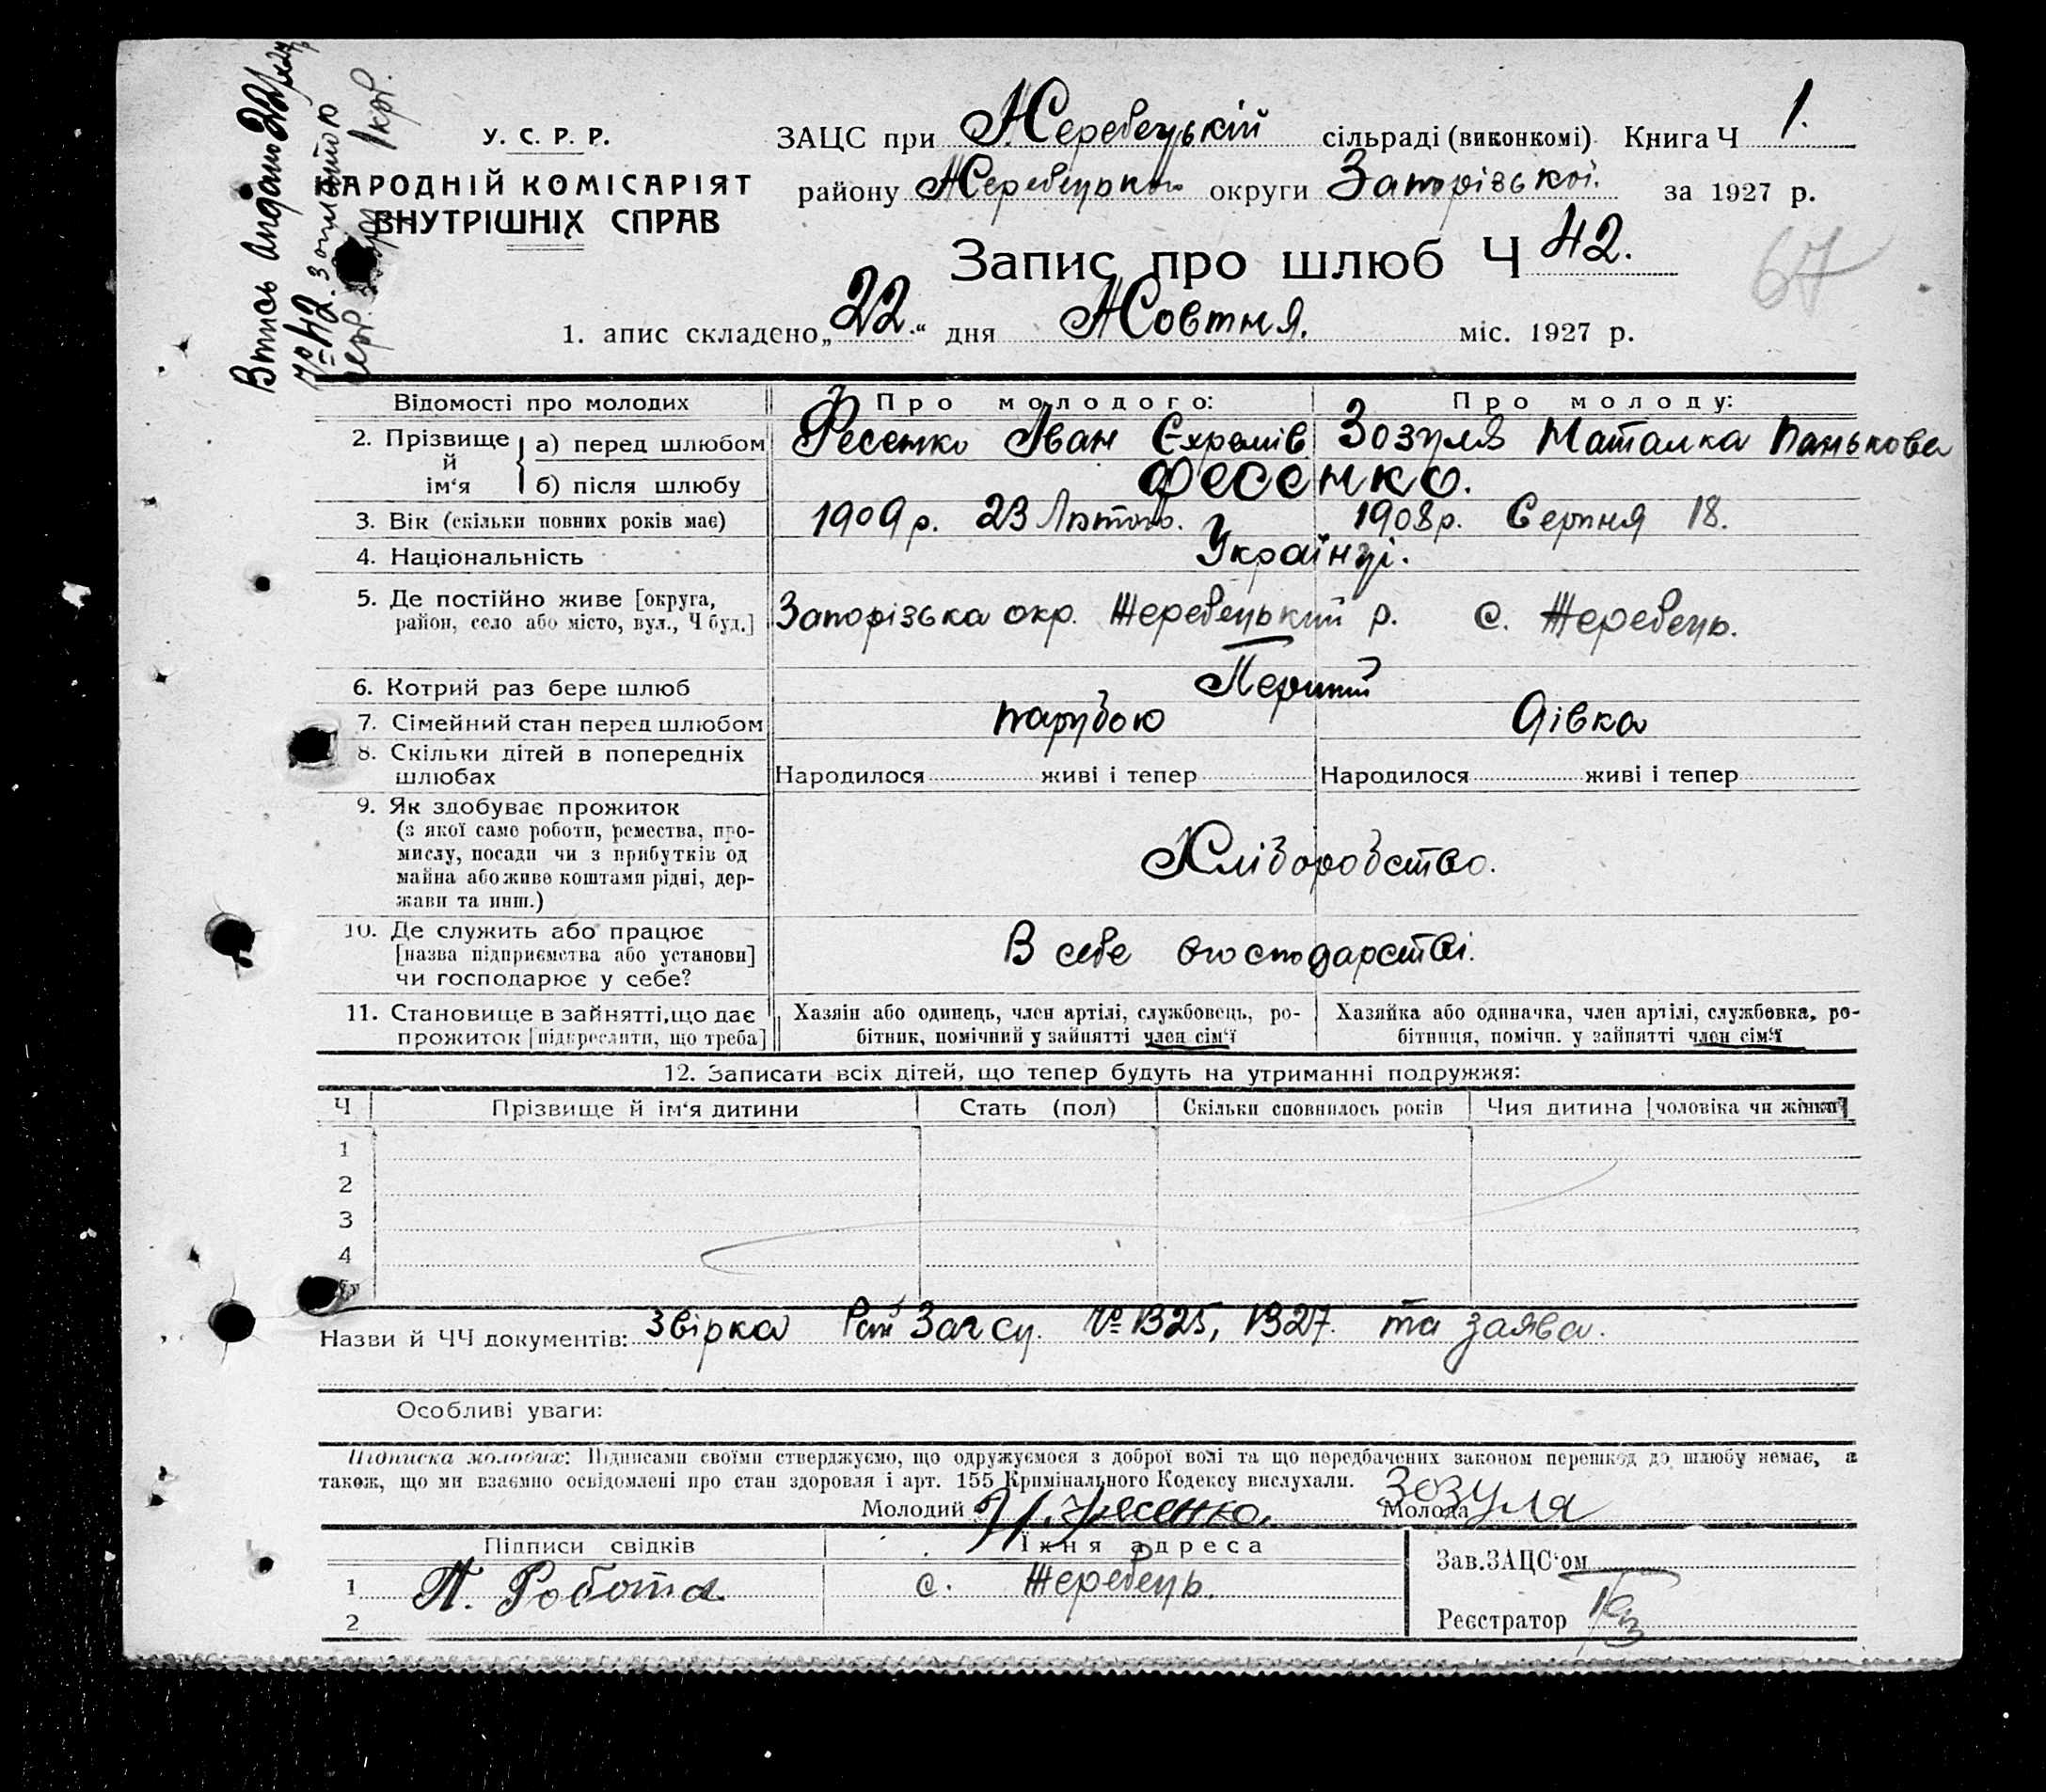 У. С. Р. Р.
НАРОДНІЙ КОМІСАРІЯТ
ВНУТРІШНІХ СПРАВ
ЗАЦС при Жеребецькій сільраді (виконкомі). Книга Ч 1.
району Жеребецького округи Запорізької. за 1927 р.
Запис про шлюб Ч 42.
67
1. апис складено „22.“ дня Жовтня. міс. 1927 р.
Впись видано
№ 42. з оплатою
1 крб.
Відомості про молодих Про молодого: Про молоду:
2. Прізвище й ім‘я а) перед шлюбом Фесенко Іван Єхремів Зозуля Наталка Панькова
б) після шлюбу Фесенко.
3. Вік (скільки повних років має) 1909 р. 23 Лютого. 1908 р. Серпня 18.
4. Національність Українці.
5. Де постійно живе [округа, район, село або місто, вул., Ч буд.] Запорізька окр. Жеребецький р. с. Жеребець.
6. Котрий раз бере шлюб Перший
7. Сімейний стан перед шлюбом парубою дівка
8. Скільки дітей в попередніх шлюбах Народилося живі і тепер Народилося живі і тепер
9. Як здобуває прожиток
(з якої саме роботи, ремества, про-
мислу, посади чи з прибутків од
майна або живе коштами рідні, дер-
жави та инш.)
Хліборобство.
10. Де служить або працює
[назва підприємства або установи]
чи господарює у себе?
В себе в господарстві.
11. Становище в зайнятті, що дає прожиток [підкреслити, що треба]
Хазяїн або одинець, член артілі, службовець, ро-
бітник, помічний у зайнятті член сім‘ї
Хазяйка або одиначка, член артілі, службовка, ро-
бітниця, помічн. у зайнятті член сім‘ї
12. Записати всіх дітей, що тепер будуть на утриманні подружжя:
Ч Прізвище й ім‘я дитини Стать (пол) Скільки сповнилось років Чия дитина [чоловіка чи жінки]
1
2
3
4
Назви й ЧЧ документів: звірка Рай Загсу. № 1325, 1327. та заява.
Особливі уваги:
Підписка молодих: Підписами своїми стверджуємо, що одружуємося з доброї волі та що передбачених законом перешкод до шлюбу немає, а
також, що ми взаємно освідомлені про стан здоровля і арт. 155 Кримінального Кодексу вислухали.
Молодий І. Фесенко. Молода Зозуля
Підписи свідків Їхня адреса
1 П. Робота с. Жеребець.
2
Зав. ЗАЦС‘ом
Реєстратор